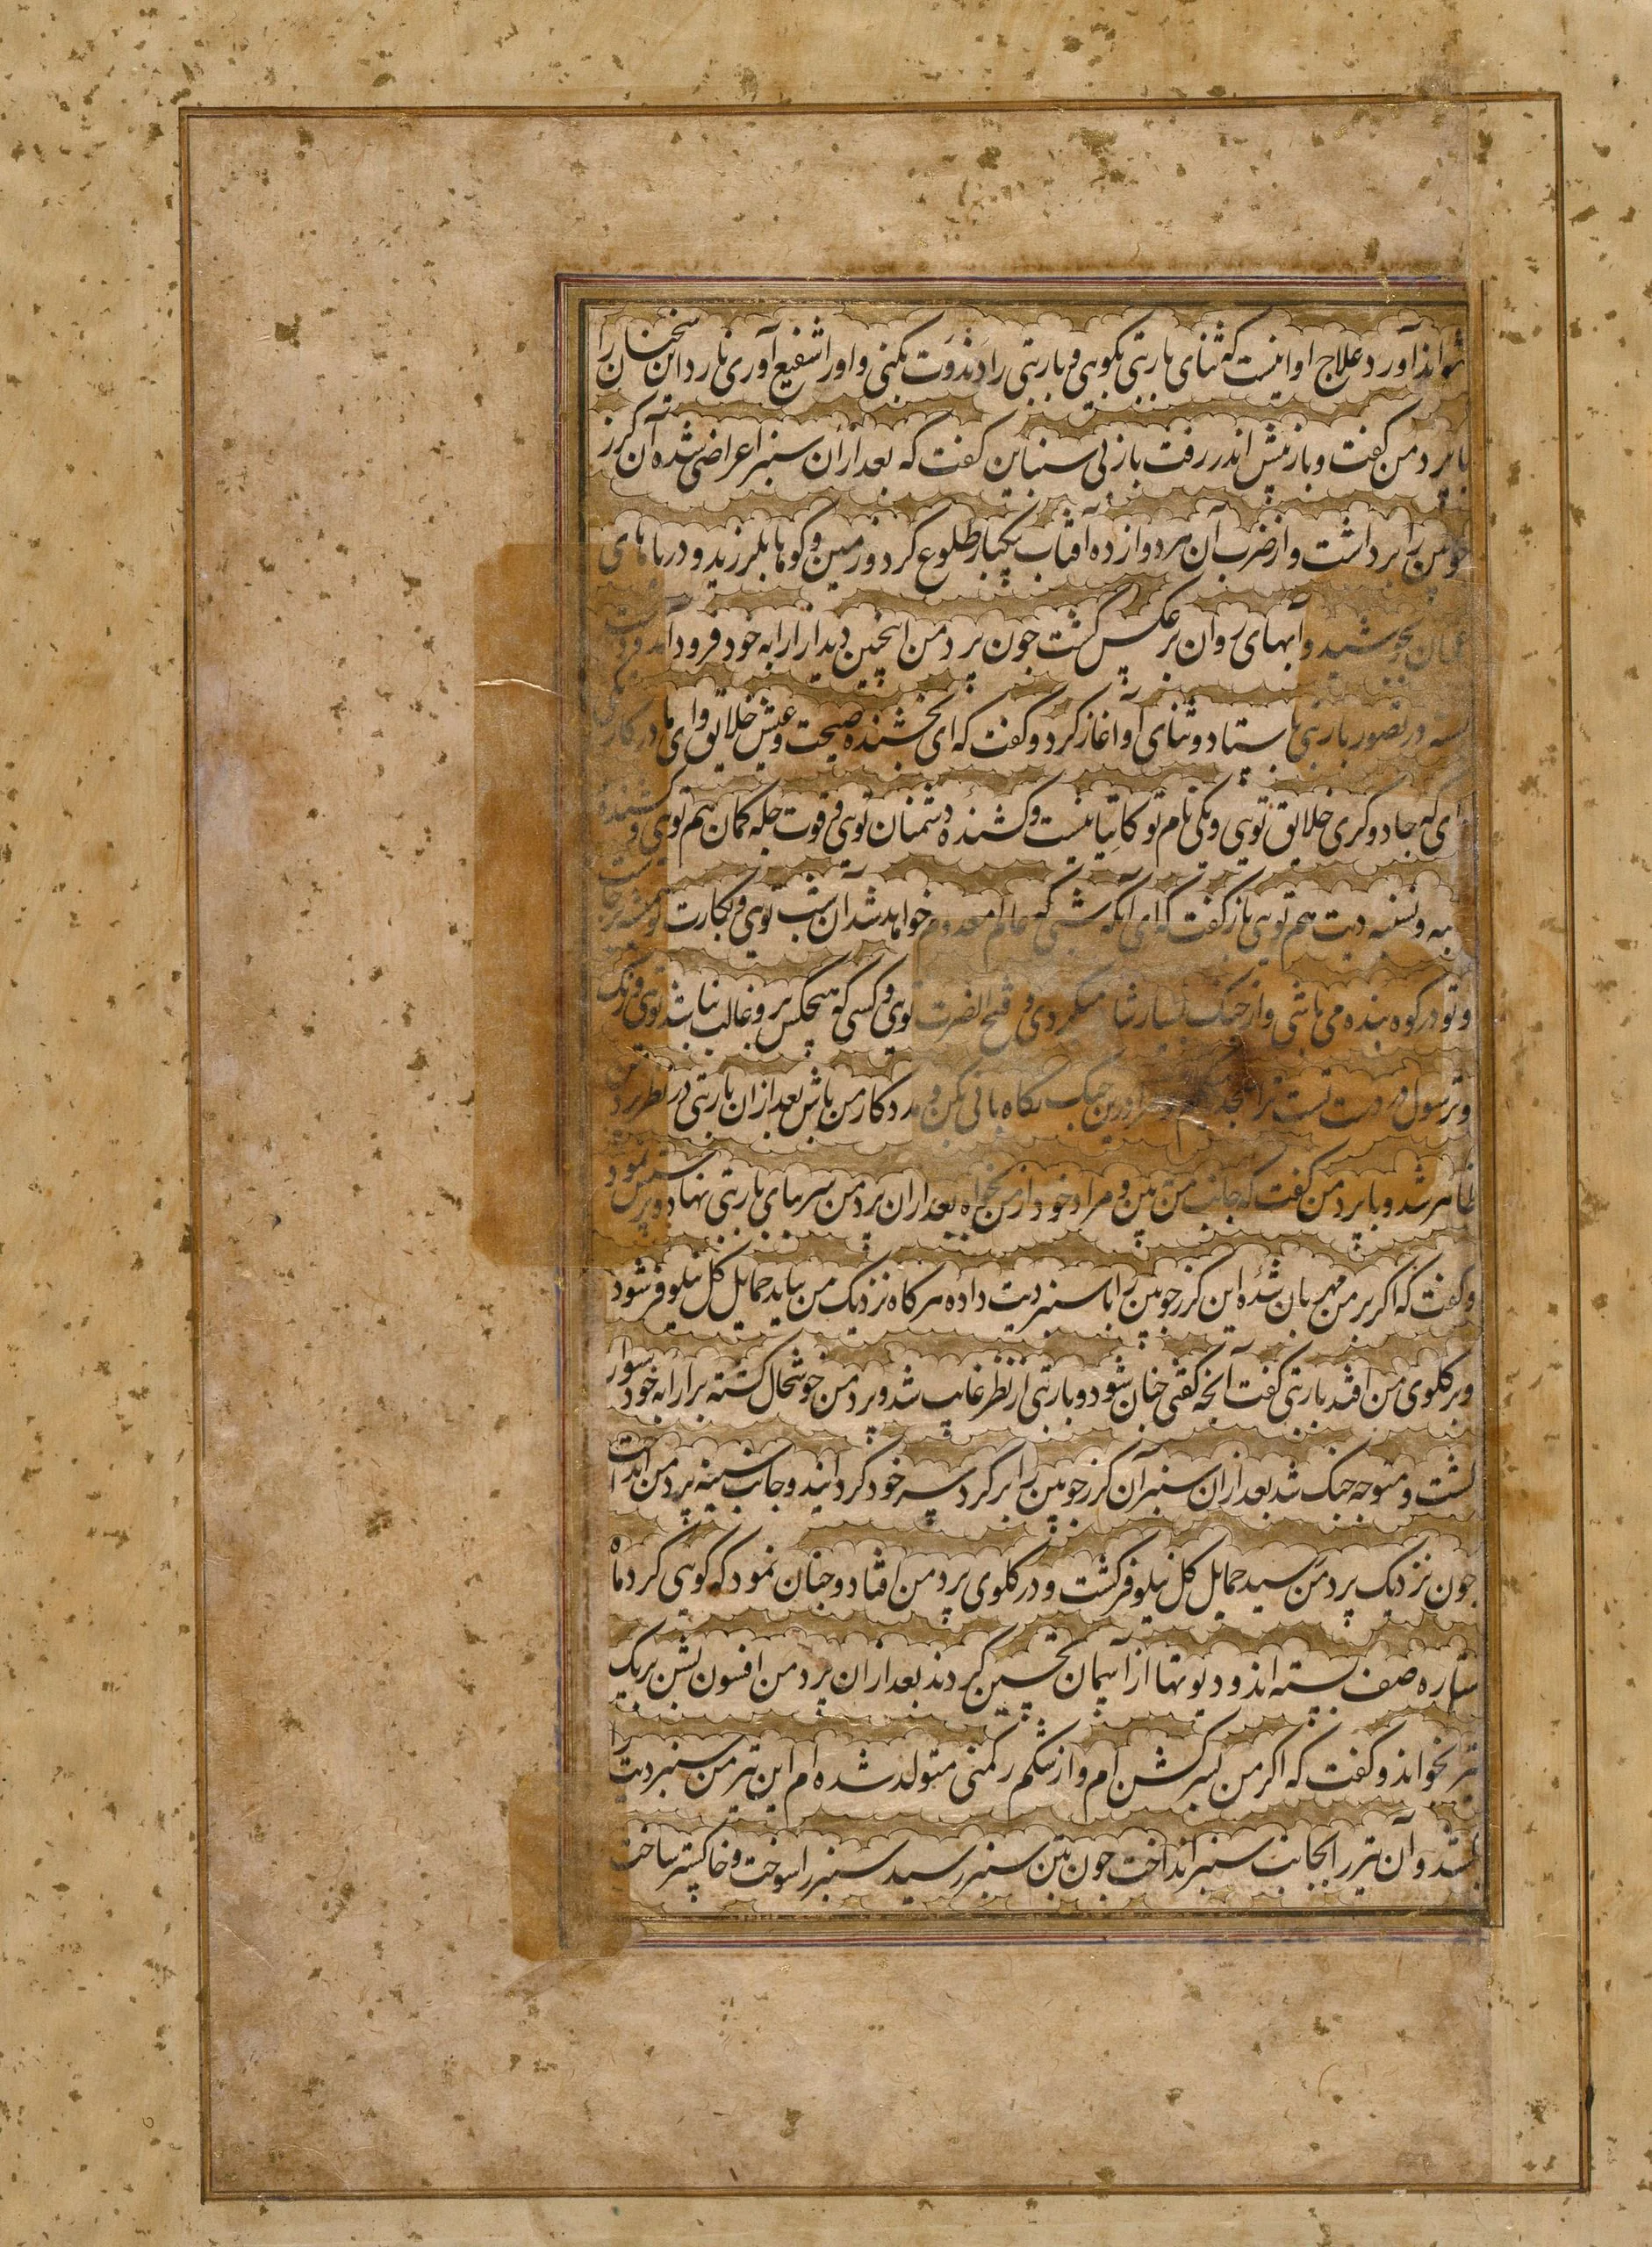 تواند آورد علاج او اینست که ثنای پاربتی بکویی و پاربتی را دندوت بکنی و او را شفیع آوری نارد این سخنان را
با پردمن کفت و باز پیش اندر رفت باز بی سنباین کفت که بعد ازان سنبر اعراضی شده آن کرز
جوبین را برداشت و از ضرب آن هر دوازده آفتاب یکبار طلوع کرد و زمین و کوهها بلرزید و دریاهای
عمان بجوشید و آبهای روان برعکس کشت جون پردمن اینچنین دید از ارابه خود فرود آمد و دست
بسته در تصور پاربتی بایستاد و ثنای او آغاز کرد و کفت که ای بخشنده صحت و عیش خلایق و ای
ای که جادوکری خلایق تویی و یکی نام تو کاتیانیست و کشنده دشمنان تویی و قوت جله کمان هم تویی و کشنده
سنبه و نسنبه دیت هم تویی باز کفت که ای آنکه شبی که عالم معدوم خواهد شد آن شب تویی و بکارت تو همیشه برجاست
و تو در کوه بنده می باشی و از جنک بسیار شاد میکردی و فتح النصرت تویی و کسی که هیچکس برو غالب نباشد تویی و رنک
و ترسول در دست تست ترا سجده میکنم و مرا درین جنک نکاه بانی بکن و مددکار من باش بعد ازان پاربتی در نظر پردمن
ظاهر شد و با پردمن کفت که جانب من ببین و مراد خود از من بخواه بعد ازان پردمن سر بپای پاربتی نهاد و پرستش نمود
و کفت که اکر بر من مهربان شده این کرز جوبین را با سنبر دیت داده هر کاه نزدیک من بیاید حمایل کل نیلوفر شود
و بر کلوی من افتد پاربتی کفت آنجه کفتی جنان شود و پاربتی از نظر غایب شد و پردمن خوشحال کشته بر ارابه خود سوار
کشت و متوجه جنک شد بعد ازان سنبر آن کرز جوبین را بر کرد سر خود کردانید و جانب سینه پردمن انداخت
جون نزدیک پردمن رسید حمایل کل نیلوفر کشت و در کلوی پردمن افتاد و جنان نمود که کویی کرد ماه
ستاره صف بسته اند و دیوتها از آسمان تحسین کردند بعد ازان پردمن افسون بشن بر یک
تیر بخواند و کفت که اکر من پسر کشن ام و از شکم رکمنی متولد شده ام این تیر من سنبر دیت را
بکشد و آن تیر را بجانب سنبر انداخت جون بتن سنبر رسید سنبر را سوخت و خاکستر ساخت